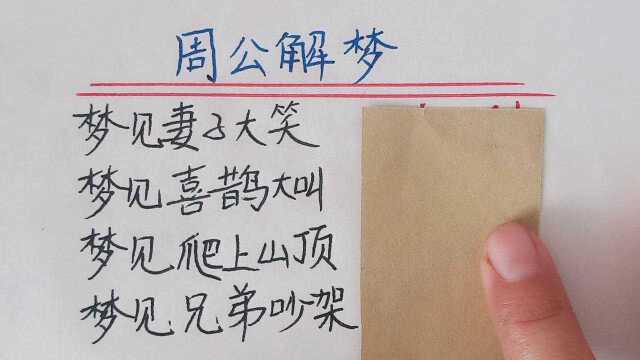 周公解梦
梦见妻子大笑
梦见喜鹊大叫
梦见爬上山顶
梦见兄弟吵架